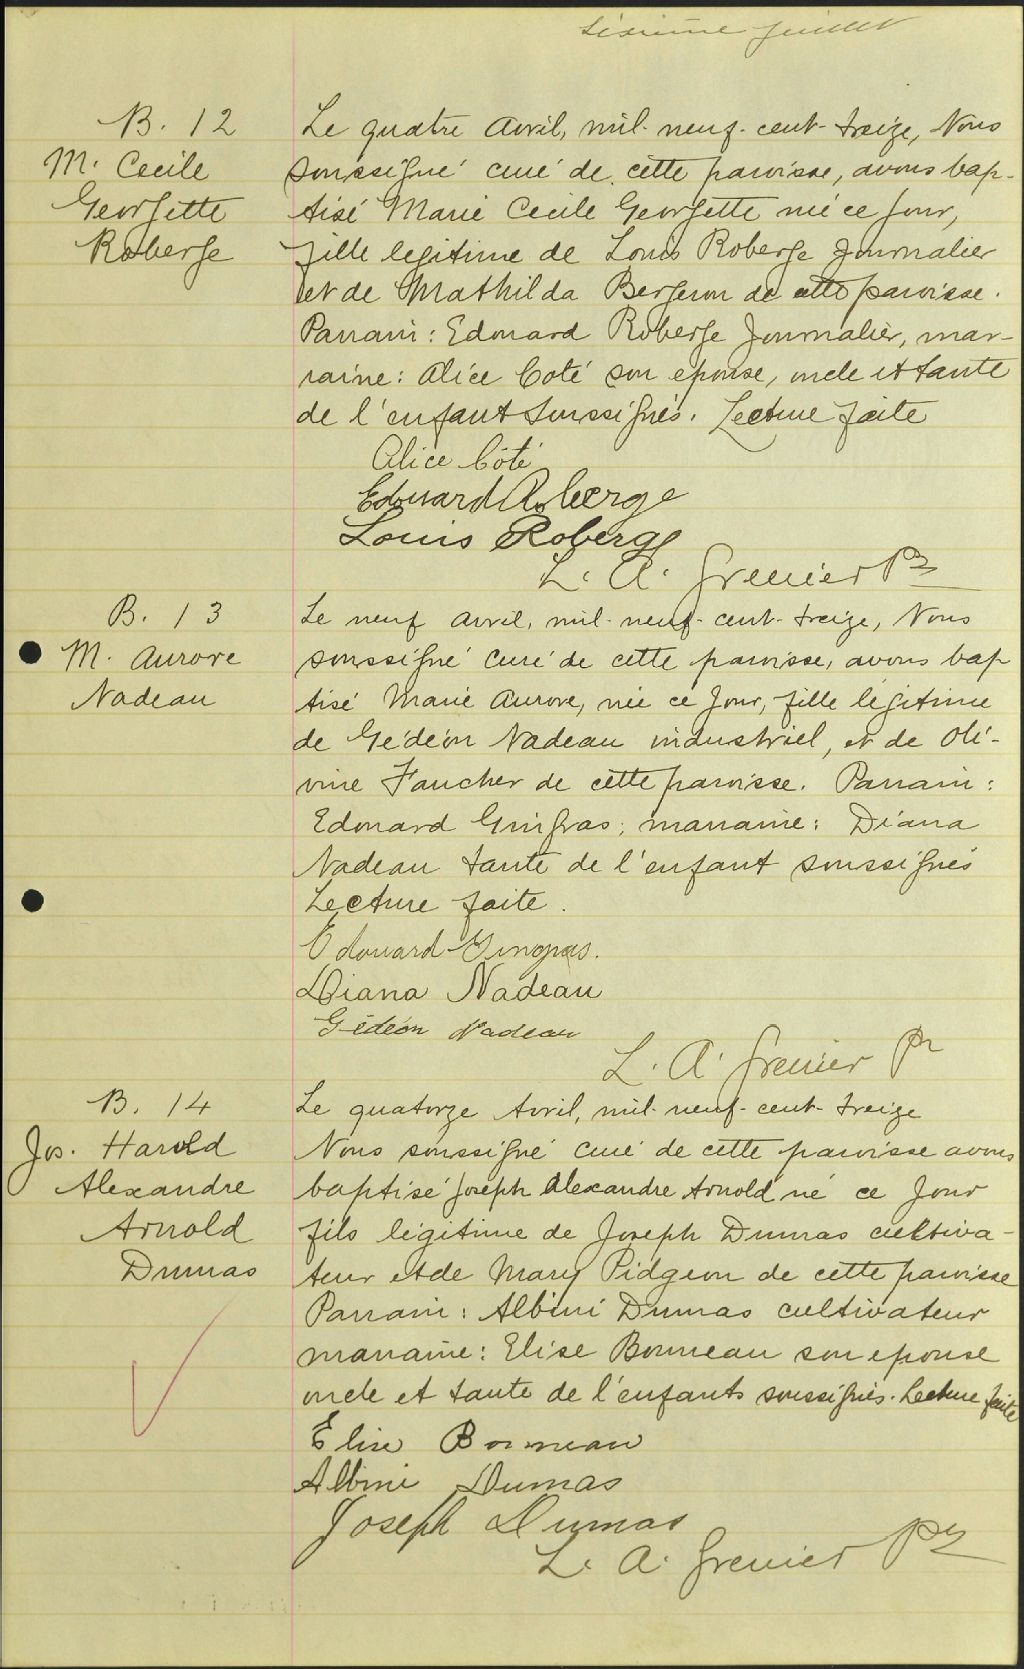 Sixième feuillet
B. 12
M. Cecile
Georgette
Roberge
Le quatre Avril, mil-neuf-cent-treize, Nous
soussigné curé de cette paroisse, avons bap-
tisé Marie Cecile Georgette née ce jour,
fille legitime de Louis Roberge Journalier
et de Mathilda Bergeron de cette paroisse.
Parrain: Edouard Roberge Journalier, mar-
raine: Alice Coté son epouse, oncle et tante
de l'enfant soussignés. Lecture faite
Alice Côté
Edouard Roberge
Louis Roberge
L. A. Grenier Ptr
B. 13
M. Aurore
Nadeau
Le neuf Avril, mil-neuf-cent-treize, Nous
soussigné curé de cette paroisse, avons bap
tisé Marie Aurore, née ce jour, fille legitime
de Gédéon Nadeau industriel, et de Oli-
vine Faucher de cette paroisse. Parrain:
Edouard Gingras; marraine: Diana
Nadeau tante de l'enfant soussignés
Lecture faite.
Edouard Gingras.
Diana Nadeau
Gédéon Nadeau
L. A. Grenier Ptr
B. 14
Jos. Harold
Alexandre
Arnold
Dumas
Le quatorze Avril, mil-neuf-cent-treize
Nous soussigné curé de cette paroisse avons
baptisé Joseph Alexandre Arnold né ce jour
fils légitime de Joseph Dumas cultiva-
teur et de Mary Pidgeon de cette paroisse
Parrain: Albini Dumas cultivateur
marraine: Elise Bonneau son epouse
oncle et tante de l'enfants soussignés. Lecture faite
Elise Bonneau
Albini Dumas
Joseph Dumas
L. A. Grenier Ptr